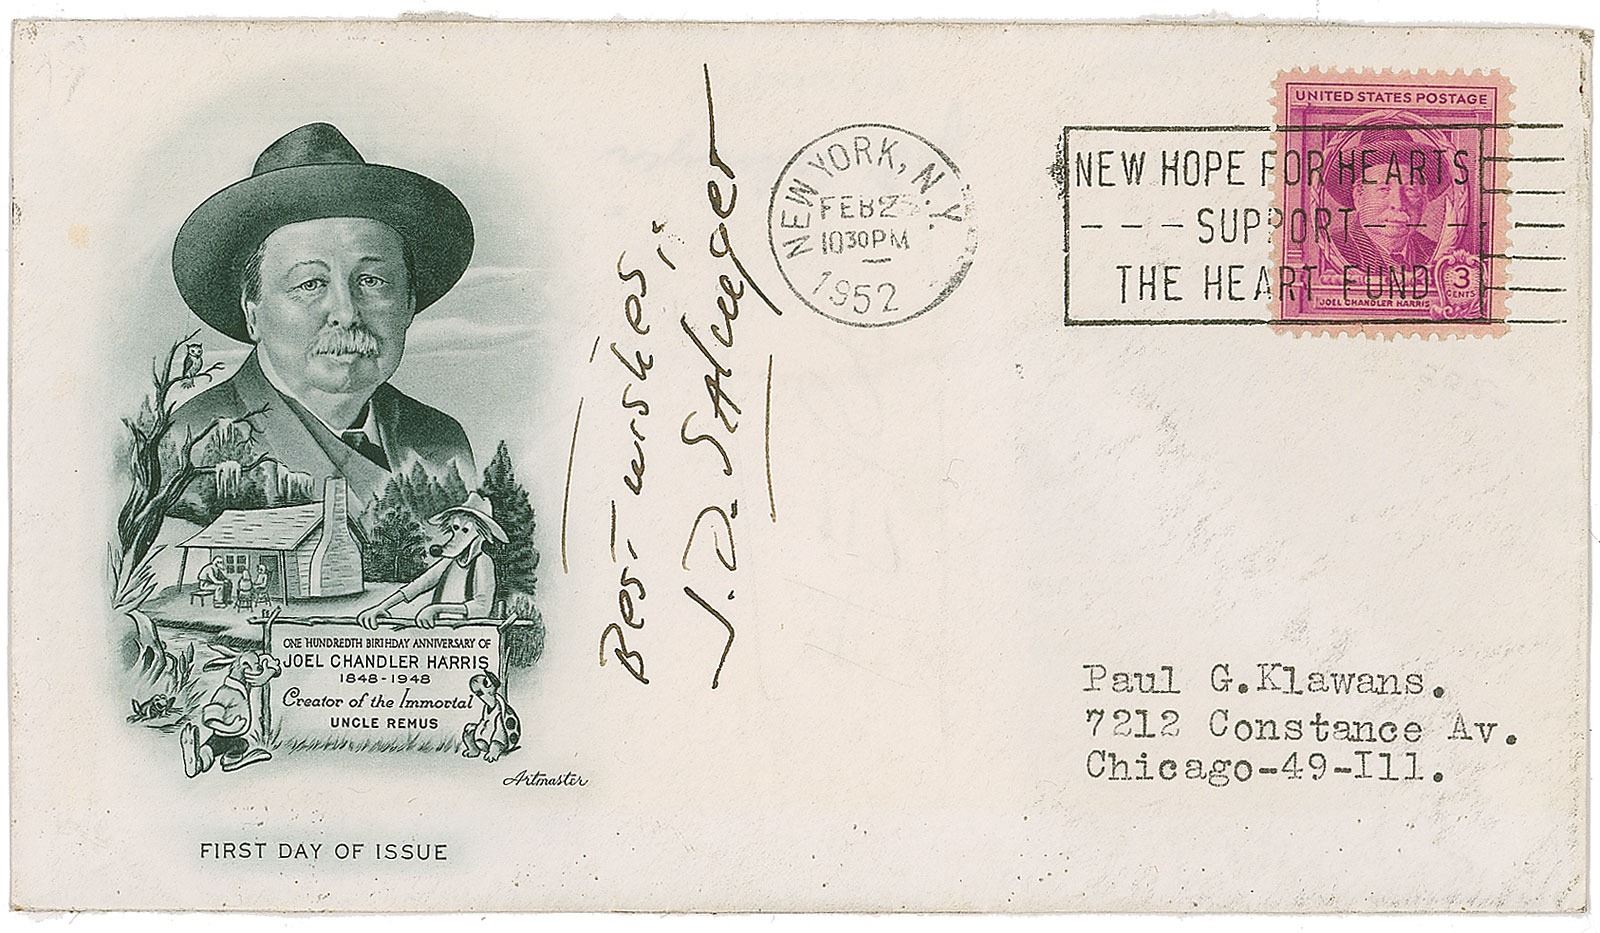 ONE HUNDREDTH BIRTHDAY ANNIVERSARY OF
JOEL CHANDLER HARRIS
1848-1948
Creator of the Immortal
UNCLE REMUS
Artmaster
FIRST DAY OF ISSUE
Best wishes,
J. D. Salinger
NEW YORK, N.Y.
FEB 2
10 30 PM
1952
NEW HOPE FOR HEARTS
--- SUPPORT ---
THE HEART FUND
UNITED STATES POSTAGE
3
CENTS
JOEL CHANDLER HARRIS
Paul G.Klawans.
7212 Constance Av.
Chicago-49-Ill.